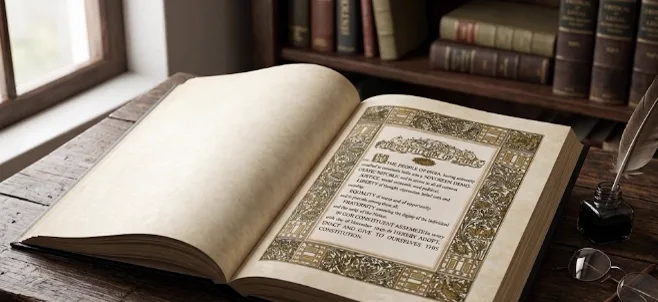 WE THE PEOPLE OF INDIA, having solemnly
resolved to constitute India into a SOVEREIGN DEMO-
CRATIC REPUBLIC and to secure to all its citizens
JUSTICE, social, economic and political;
LIBERTY of thought, expression, belief, faith and
worship;
EQUALITY of status and of opportunity;
and to promote among them all;
FRATERNITY assuring the dignity of the individual
and the unity of the Nation;
CONSTITUENT
of November HEREBY ADOPT,
ENACT AND GIVE TO OURSELVES THIS
CONSTITUTION.